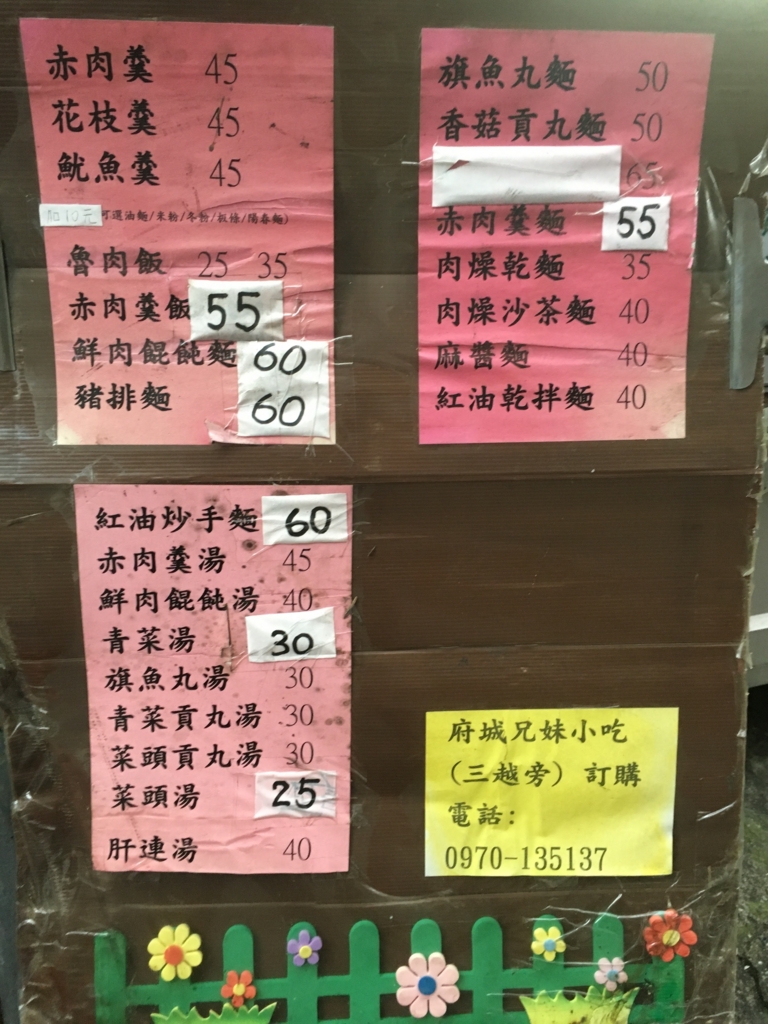 赤肉羹 45
花枝羹 45
魷魚羹 45
加10元 可選油麵/米粉/冬粉/板條/陽春麵)
魯肉飯 25 35
赤肉羹飯 55
鮮肉餛飩麵 60
豬排麵 60
旗魚丸麵 50
香菇貢丸麵 50
65
赤肉羹麵 55
肉燥乾麵 35
肉燥沙茶麵 40
麻醬麵 40
紅油乾拌麵 40
紅油炒手麵 60
赤肉羹湯 45
鮮肉餛飩湯 40
青菜湯 30
旗魚丸湯 30
青菜貢丸湯 30
菜頭貢丸湯 30
菜頭湯 25
肝連湯 40
府城兄妹小吃
(三越旁) 訂購
電話:
0970-135137